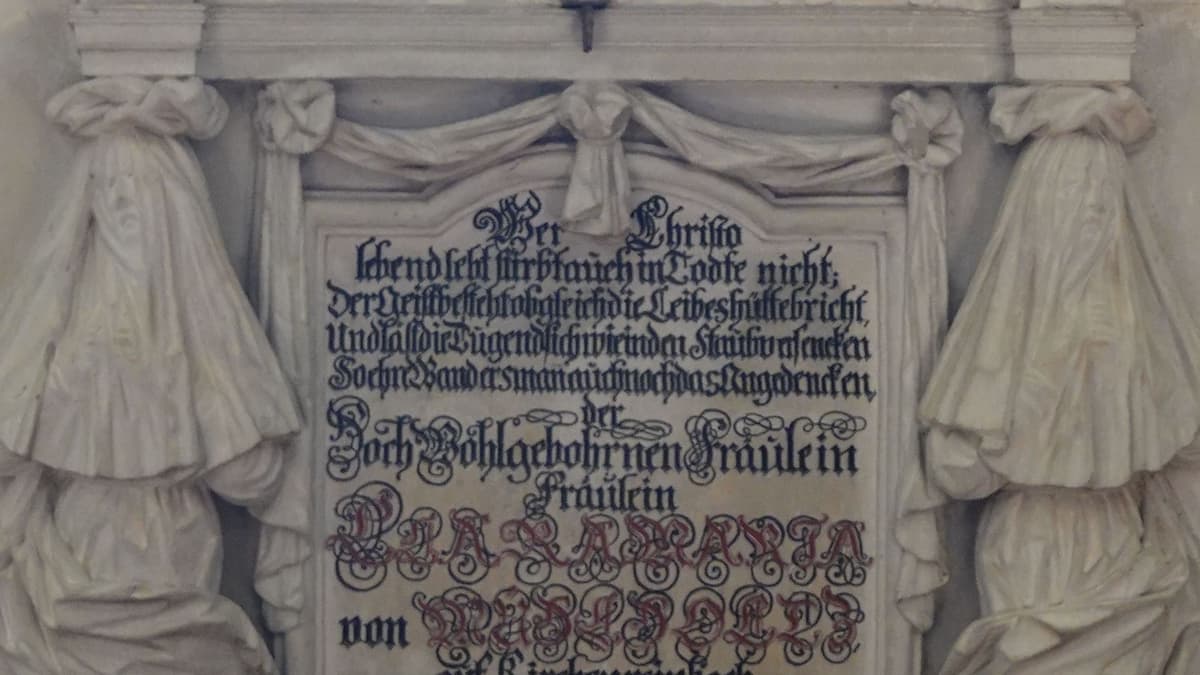 Wer Christo
lebend lebt stirbt auch in Todte nicht;
Der Geist besteht obgleich die Leibeshütte bricht,
Und läst die Tugend sich wie in den Staub versencken
So ehre Wandersman auch noch das Angedencken,
der
Hoch Wohlgebohrnen Fräulein
Fräulein
CLARA MARIA
von
auf